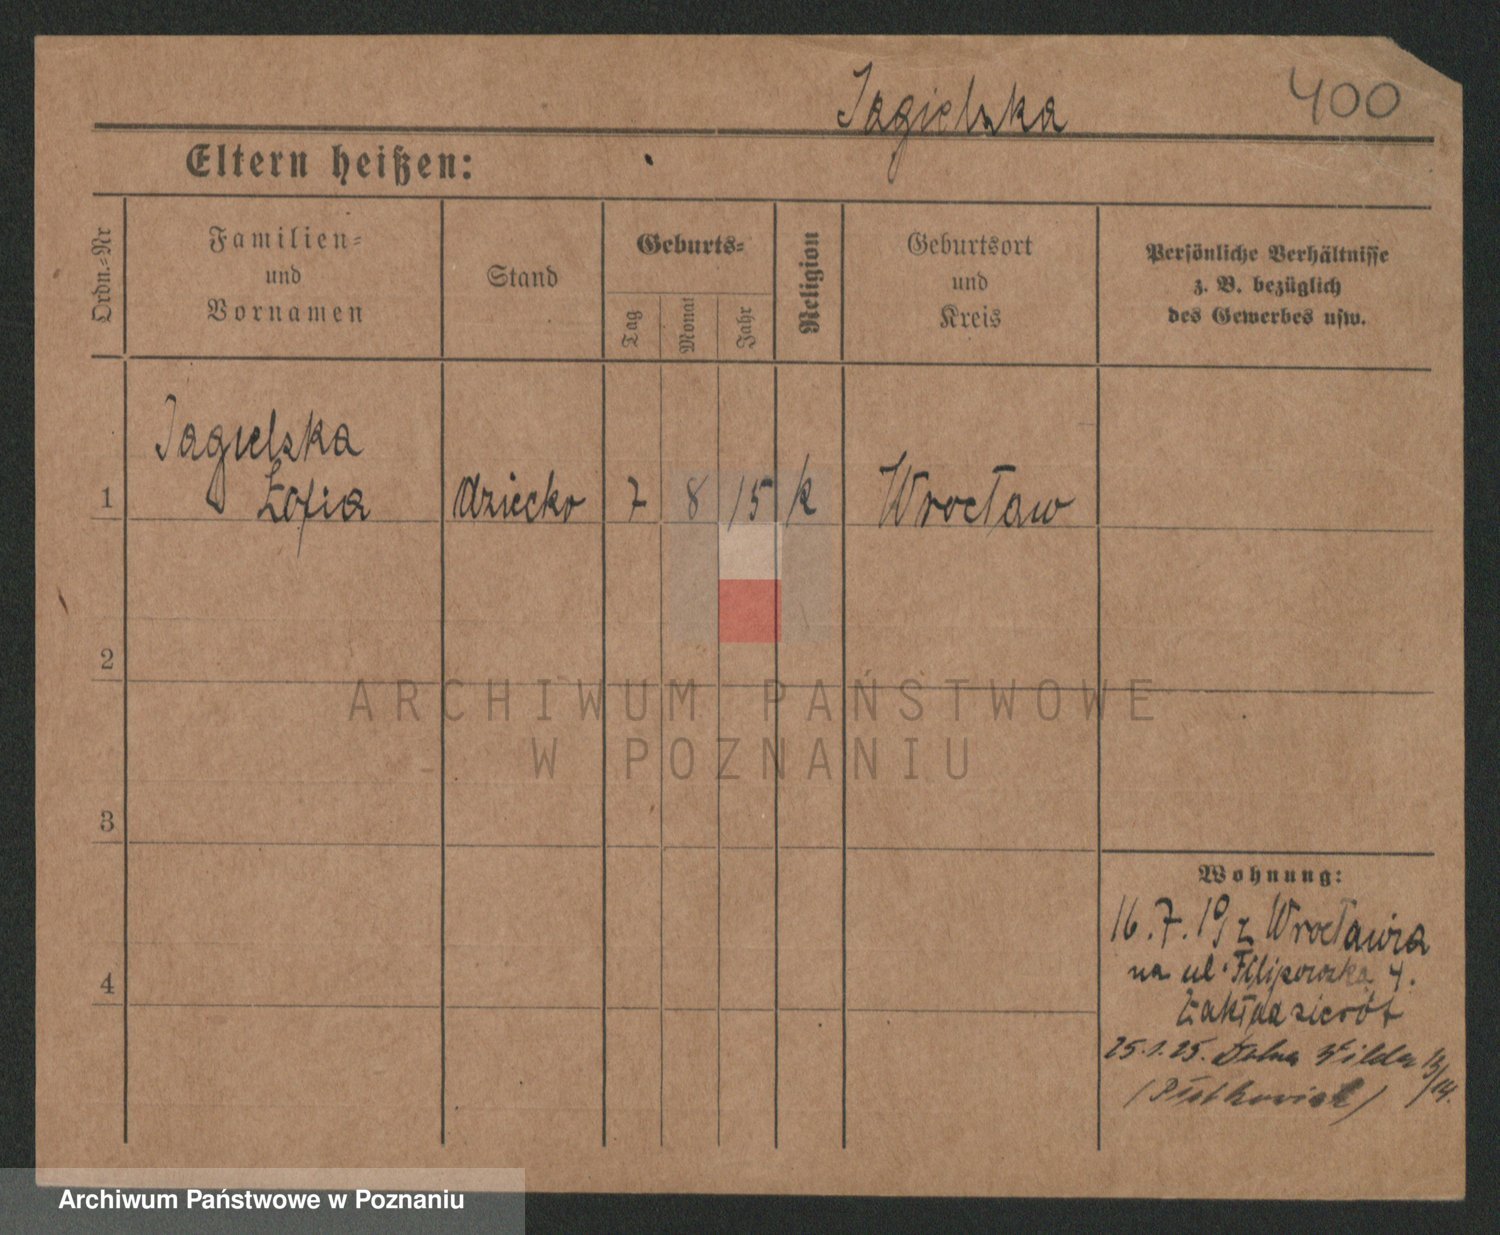 Jagielska 400
Eltern heißen:
Ordn.-Nr
Familien-
und
Vornamen
Stand
Geburts-
Tag Monat Jahr
Religion
Geburtsort
und
Kreis
Persönliche Verhältnisse
z. B. bezüglich
des Gewerbes usw.
Jagielska
1 Zofia dziecko 7 8 15 k Wrocław
2
ARCHIWUM PAŃSTWOWE
W POZNANIU
3
Wohnung:
16.7.19 z Wrocławia
na ul. Filipowska 4.
4
Zakł. da sierót
25.1.25. Dolna Wilda 13/14.
Archiwum Państwowe w Poznaniu